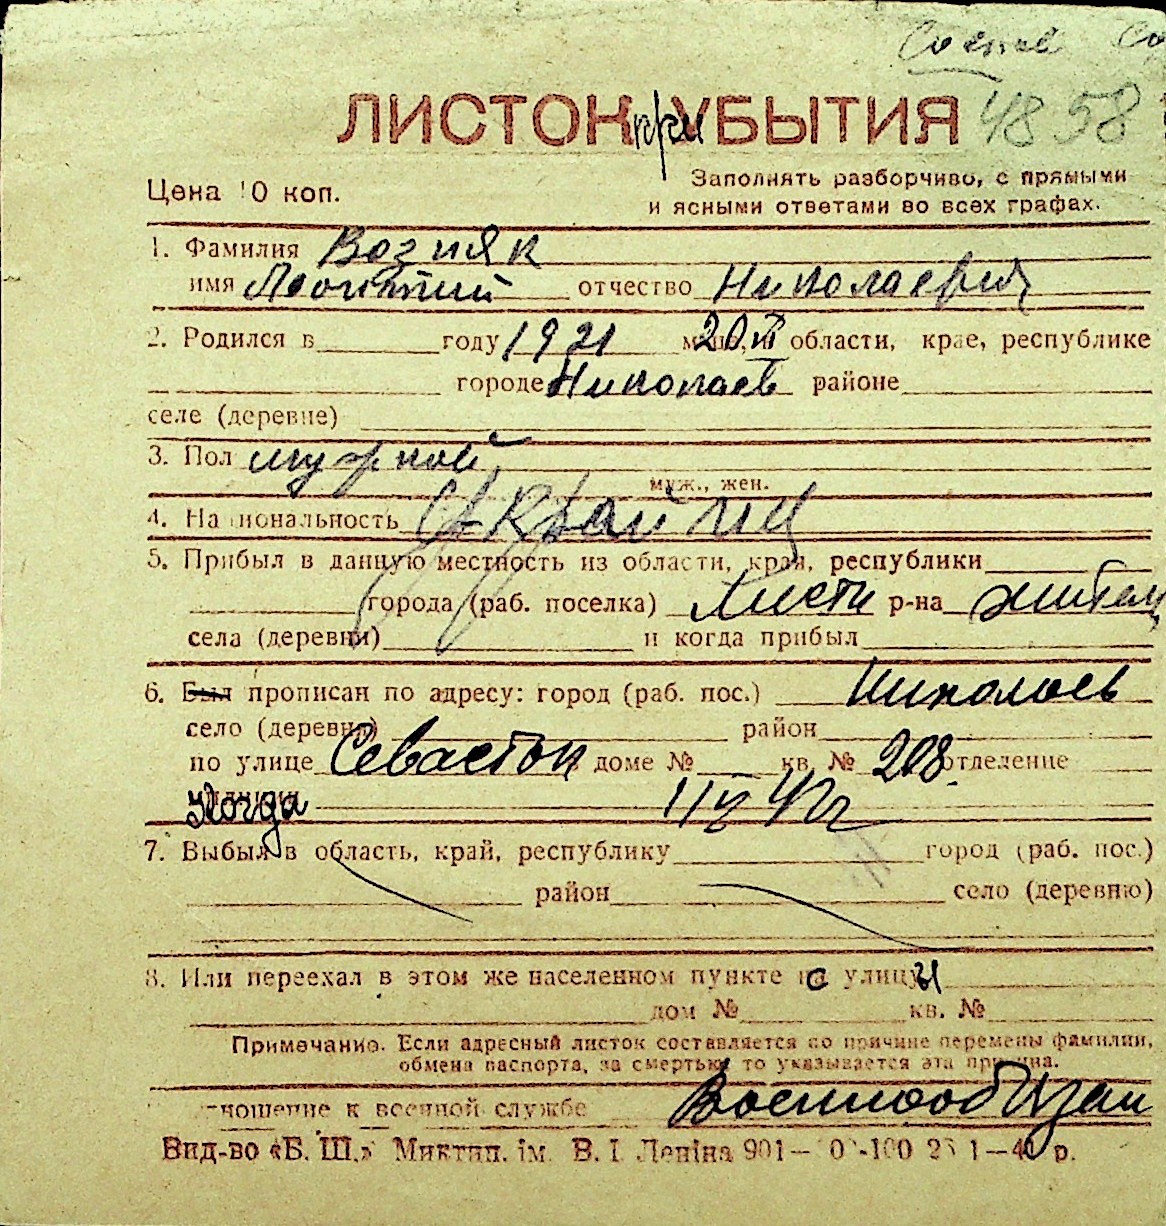 4858
ЛИСТОК при УБЫТИЯ
Цена 10 коп.
Заполнять разборчиво, с прямыми
и ясными ответами во всех графах.
1. Фамилия Возняк
имя Леонтий отчество Николаевич
2. Родился в году 1921 20 области, крае, республике
городе Николаев районе
селе (деревне)
3. Пол мужской
муж., жен.
4. Национальность Украинец
5. Прибыл в данную местность из области, края, республики
города (раб. поселка) р-на
села (деревни) и когда прибыл
6. Был прописан по адресу: город (раб. пос.) Николаев
село (деревня) район
по улице Севастоп доме № кв. № 208 отделение
милиции Когда
7. Выбыл в область, край, республику город (раб. пос.)
район село (деревню)
8. Или переехал в этом же населенном пункте с улицы
дом № кв. №
Примечание. Если адресный листок составляется по причине перемены фамилии,
обмена паспорта, за смертью, то указывается эта причина.
отношение к военной службе Военнообязан
Вид-во «Б. Ш.» Миктип. ім. В. І. Леніна 901—